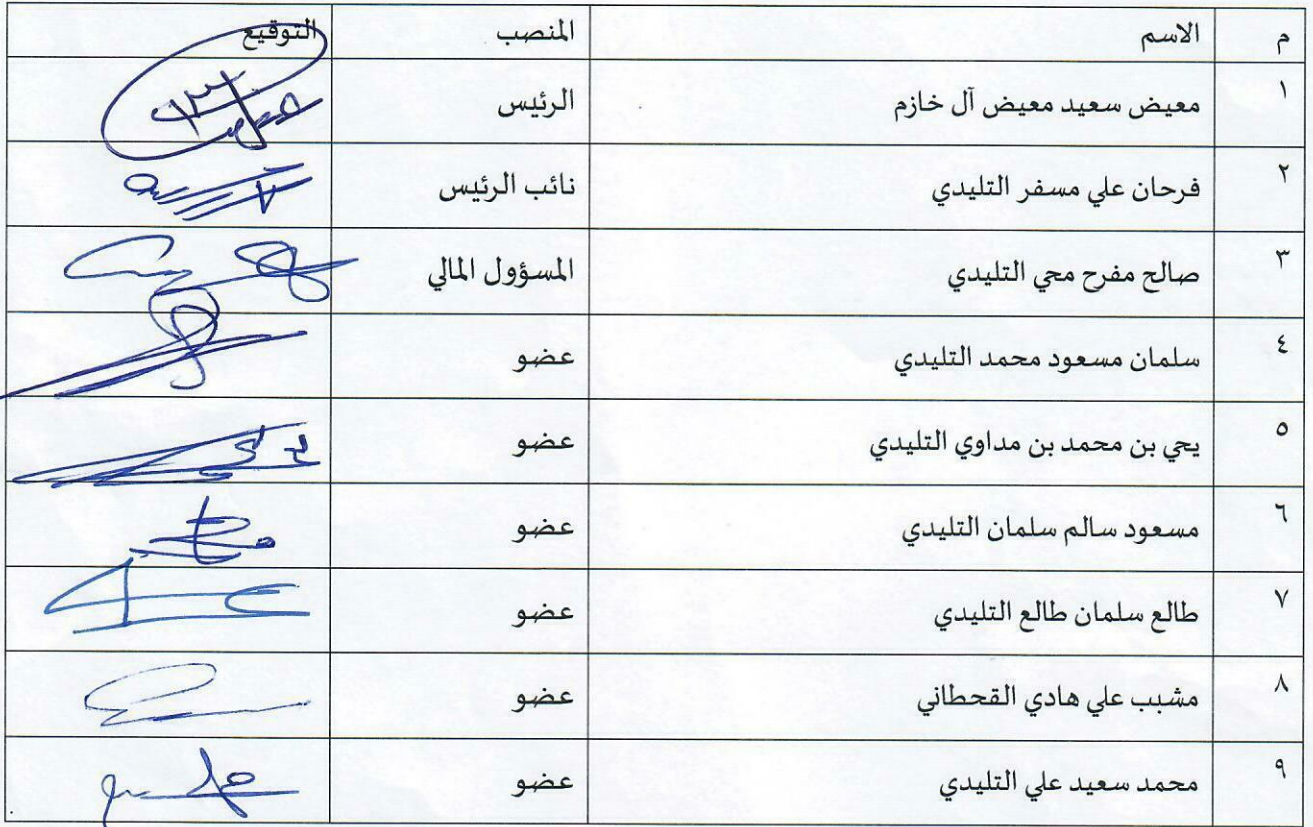 م الاسم المنصب التوقيع
١ معيض سعيد معيض آل خازم الرئيس
٢ فرحان علي مسفر التليدي نائب الرئيس
٣ صالح مفرح محي التليدي المسؤول المالي
٤ سلمان مسعود محمد التليدي عضو
٥ يحي بن محمد بن مداوي التليدي عضو
٦ مسعود سالم سلمان التليدي عضو
٧ طالع سلمان طالع التليدي عضو
٨ مشبب علي هادي القحطاني عضو
٩ محمد سعيد علي التليدي عضو